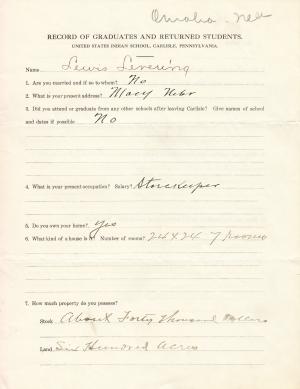 Omaha. Neb
RECORD OF GRADUATES AND RETURNED STUDENTS.
UNITED STATES INDIAN SCHOOL, CARLISLE, PENNSYLVANIA.
Name Lewis Levering
1. Are you married and if so to whom? No
2. What is your present address? Macy Nebr
3. Did you attend or graduate from any other schools after leaving Carlisle? Give names of school
and dates if possible No
4. What is your present occupation? Salary? Storekeeper
5. Do you own your home? Yes
6. What kind of a house is it? Number of rooms? 24 x 24 7 rooms
7. How much property do you possess?
Stock, About Forty thousand dollars
Land, Six Hundred Acres